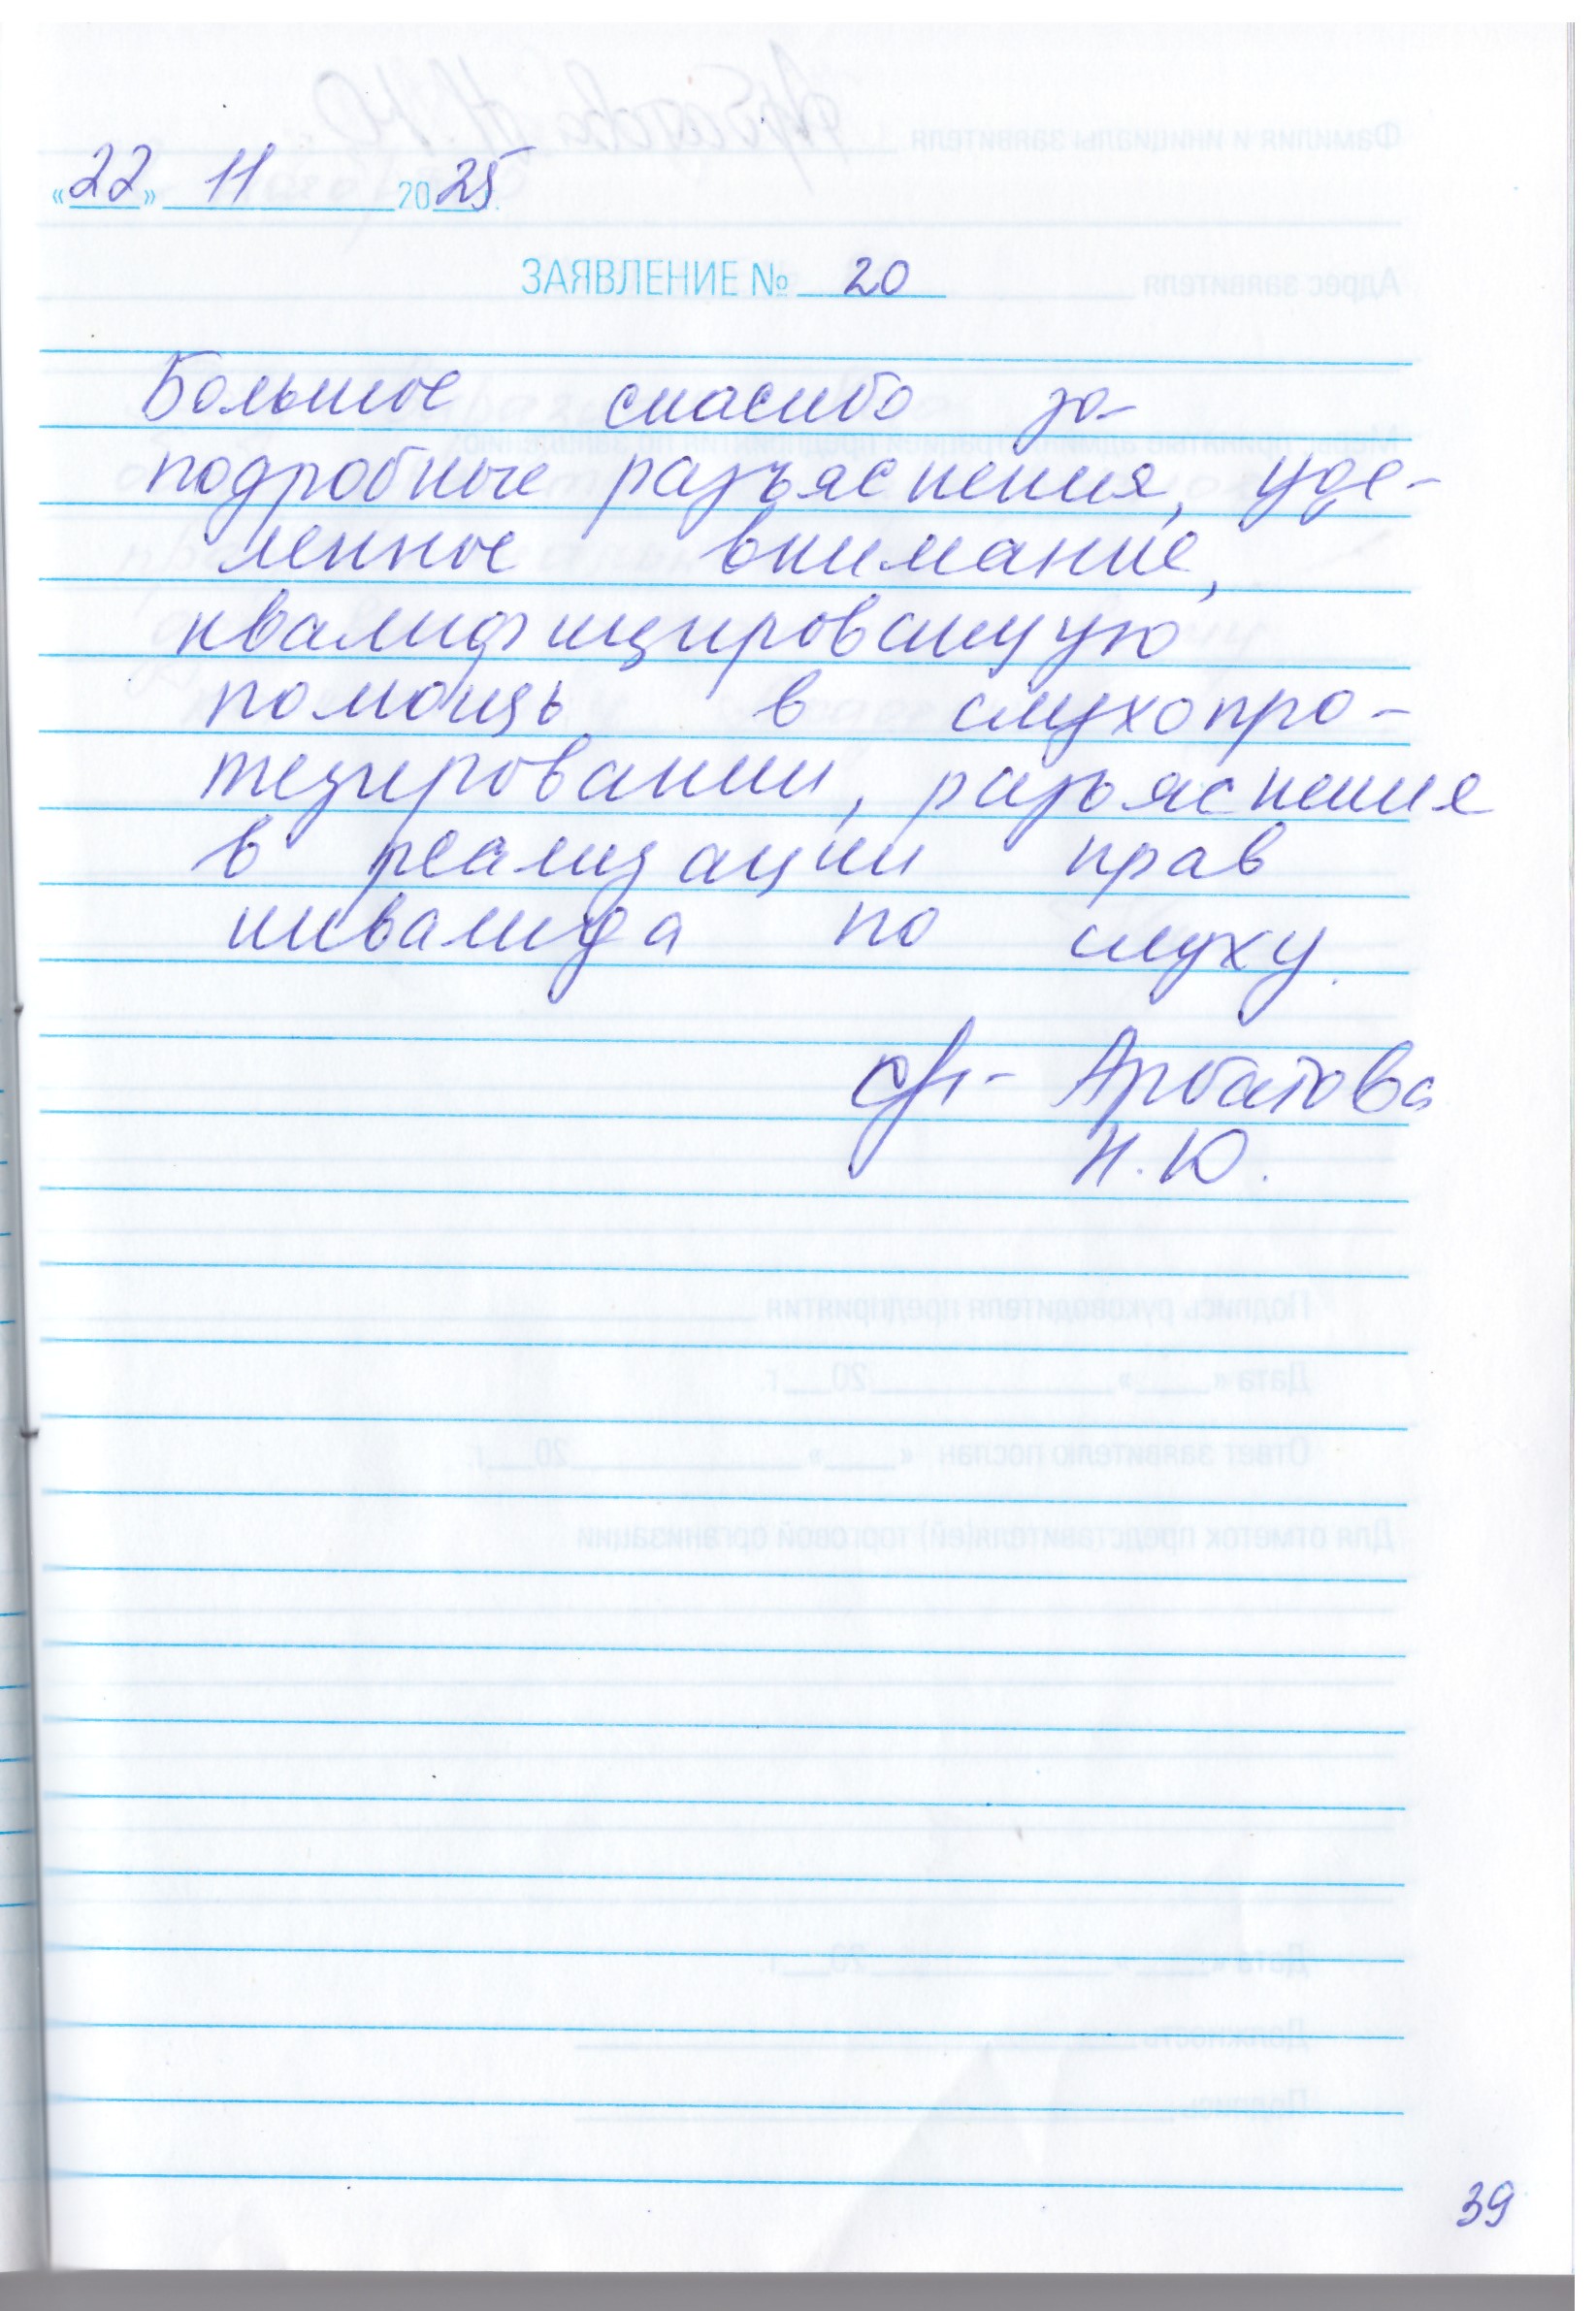 «22» 11 2025.
ЗАЯВЛЕНИЕ № 20
Большое спасибо за
подробные разъяснения, уде-
ленное внимание,
квалифицировануую
помощь в слухопро-
тезировании, разъяснения
в реализации прав
инвалида по слуху.
Арбатова
Н.Ю.
39